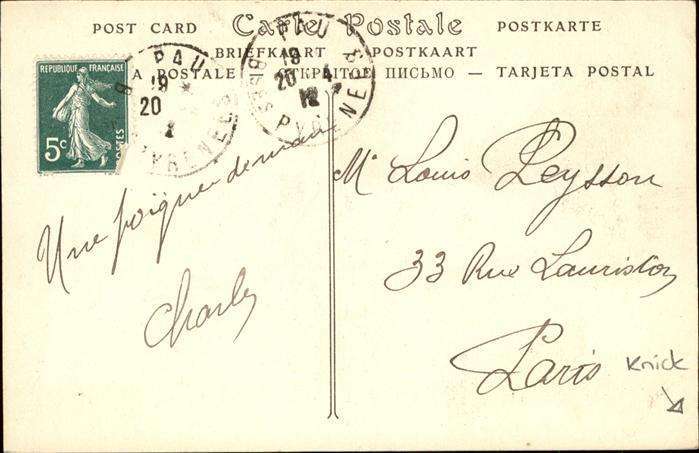 POST CARD Carte Postale POSTKARTE
BRIEFKAART POSTKAART
A POSTALE ОТКРЫТОЕ ПИСЬМО — TARJETA POSTAL
REPUBLIQUE FRANÇAISE
5c
POSTES
PAU
19
20
PAU
19
20 4
12
BSES PYRENEES
Mr Louis Peysson
33 Rue Lauriston
Paris
Une poignée de main
Charley
Knick